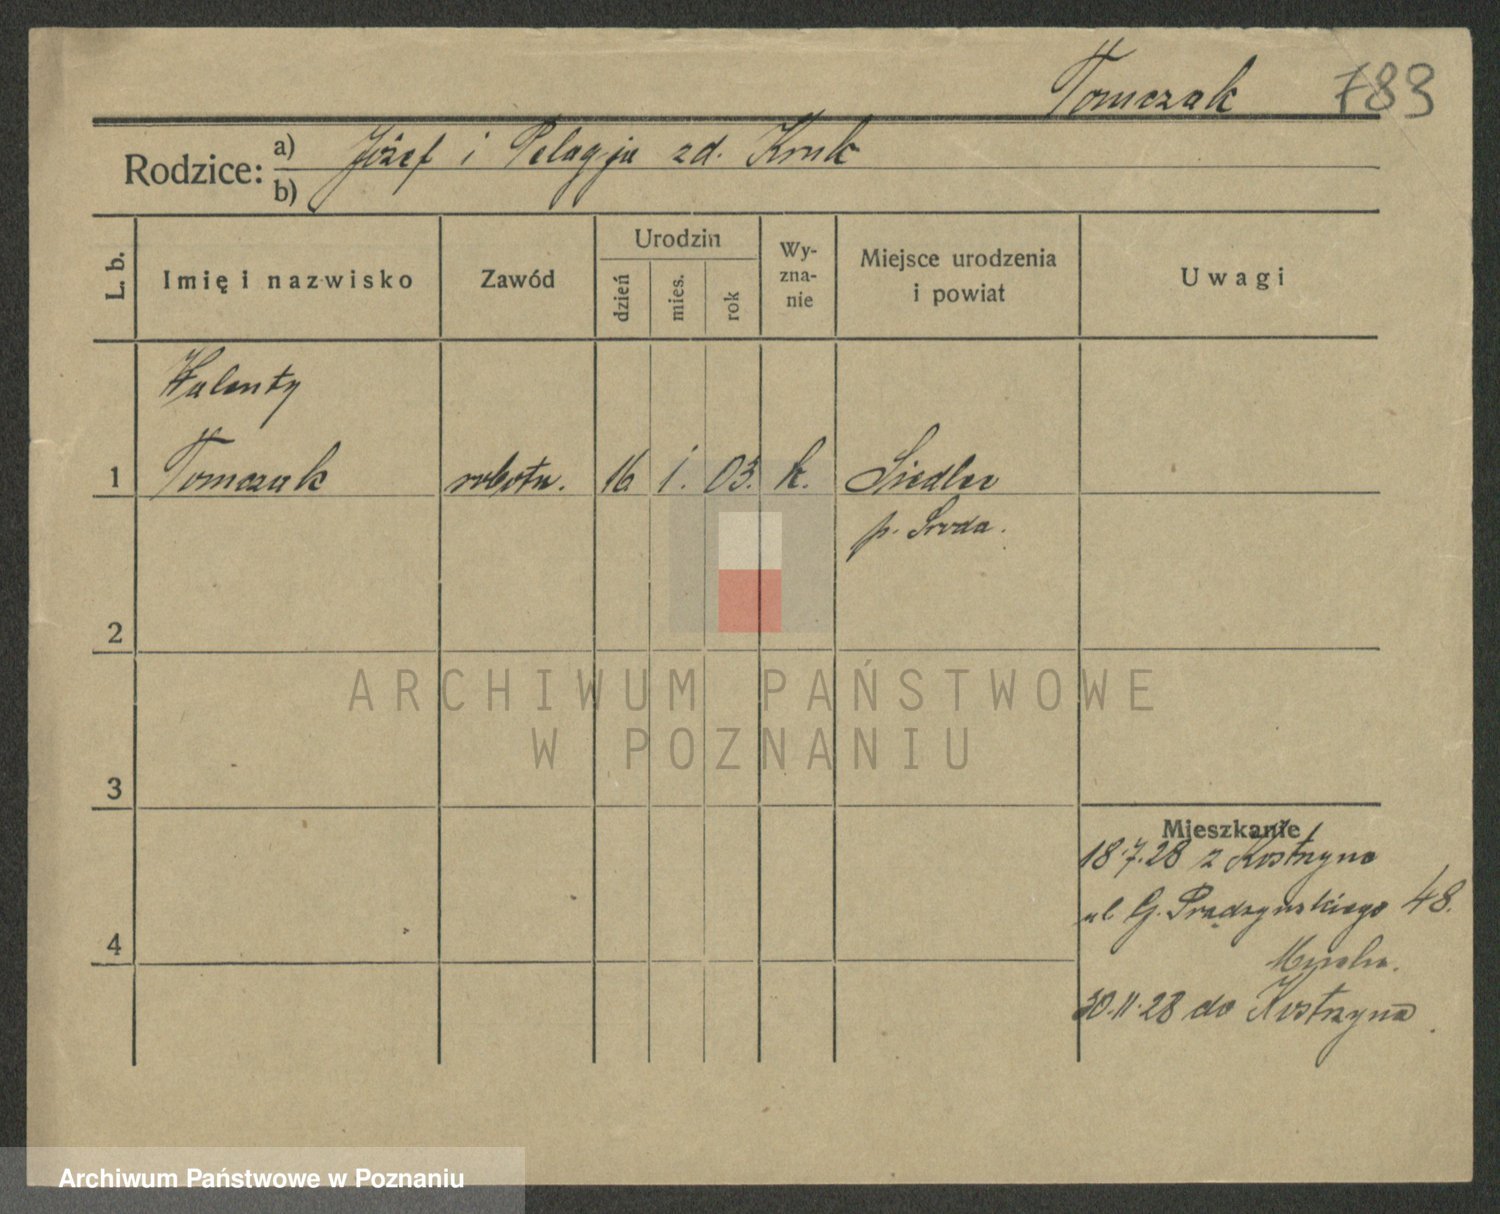 Tomczak 783
Rodzice: a) Józef i Pelagja zd. Kruk
b)
L. b.
Imię i nazwisko
Zawód
Urodzin
dzień
mies.
rok
Wy-
zna-
nie
Miejsce urodzenia
i powiat
Uwagi
Walenty
1 Tomczak robotn. 16 1. 03. k. Siedlec
p. Środa.
2
3
4
ARCHIWUM PAŃSTWOWE
W POZNANIU
Mieszkanie
18.7.28 z Kostrzyna
ul G. Prądzyńskiego 48.
30.11.28 do Kostrzyna
Archiwum Państwowe w Poznaniu